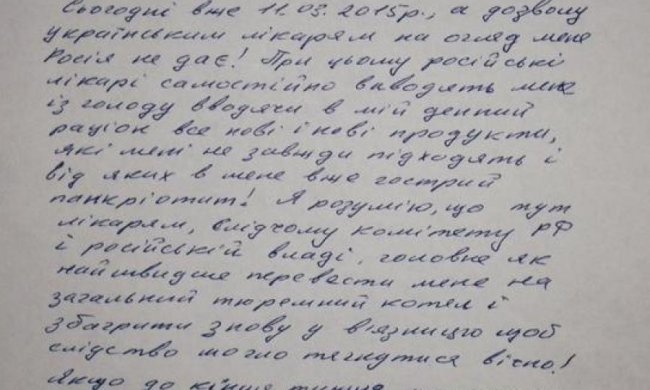 Сьогодні вже 11.03.2015р., а дозволу
українським лікарям на огляд мене
Росія не дає! При цьому російські
лікарі самостійно виводять мене
із голоду вводячи в мій денний
раціон все нові і нові продукти,
які мені не завжди підходять і
від яких в мене вже гострий
панкріотит! Я розумію, що тут
лікарям, Слідчому комітету РФ
і російській владі, головне як
найшвидше перевести мене на
загальний тюремний котел і
збагрити знову у в'язницю щоб
слідство могло тягнутися вічно!
Якщо до кінця тижня